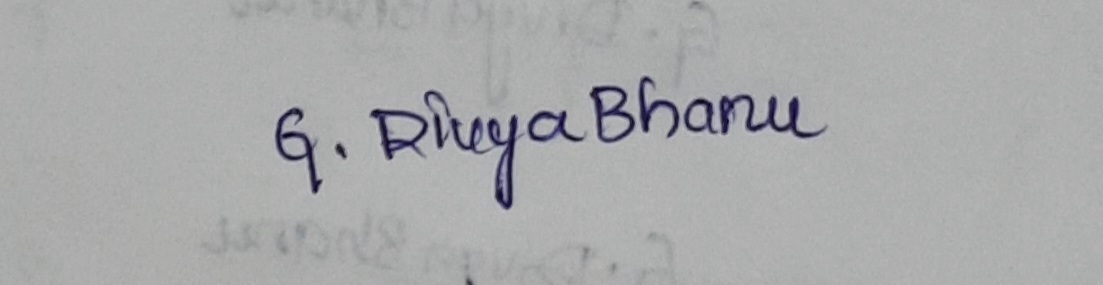 G. Divya Bhanu